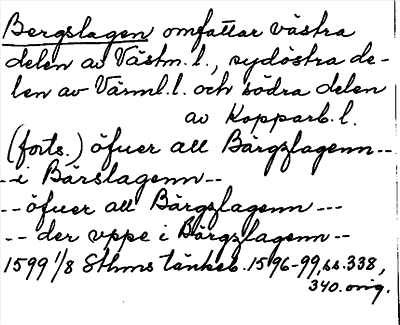 Bergslagen omfattar västra
delen av Västm. l., sydöstra de-
len av Värml. l. och södra delen
av Kopparb. l.
(forts.) öfuer all Bärgzlagenn--
--i Bärslagenn--
--öfuer all Bärgzlagenn ---
-- der vppe i Bärgzlagenn --
1599 1/8 Sthms tänkeb. 1596-99, ss. 338,
340. orig.